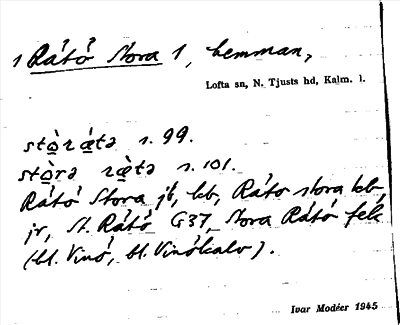 1 Råtö Stora 1, hemman,
Lofta sn, N. Tjusts hd, Kalm. l.
stò̱rǽ̱tə s. 99.
stò̱rə ræ̱tə s. 101.
Råtö Stora jb, kb, Råtö stora kb,
jr, St. Råtö G37, Stora Råtö fék
(bl. Vinö, bl. Vinökalv).
Ivar Modéer 1945